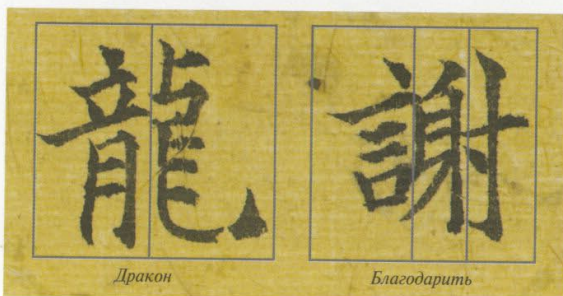 龍 謝
Дракон Благодарить